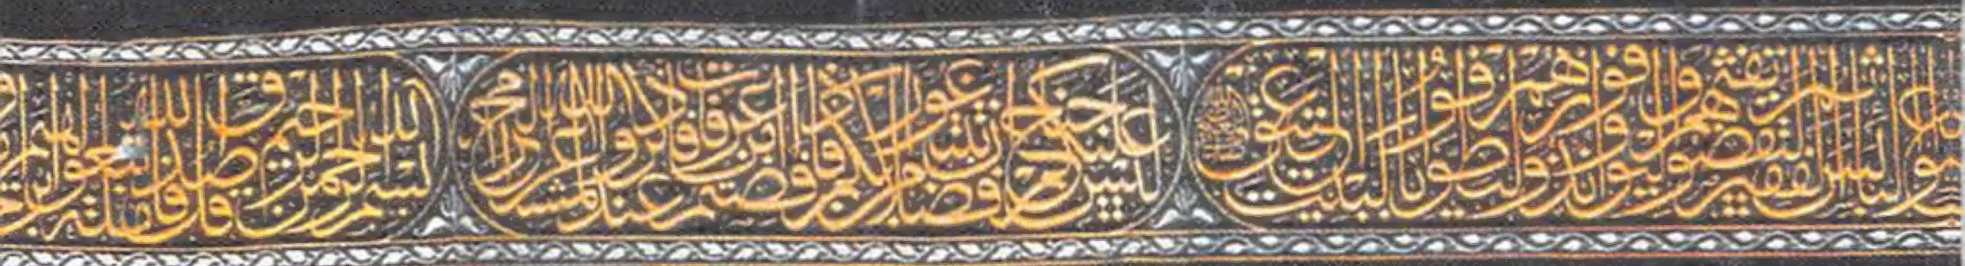 البائس الفقير ثم ليقضوا تفثهم وليوفوا نذورهم وليطوفوا بالبيت العتيق
ليس عليكم جناح أن تبتغوا فضلا من ربكم فإذا أفضتم من عرفات فاذكروا الله عند المشعر الحرام
بسم الله الرحمن الرحيم قل صدق الله فاتبعوا ملة إبراهيم